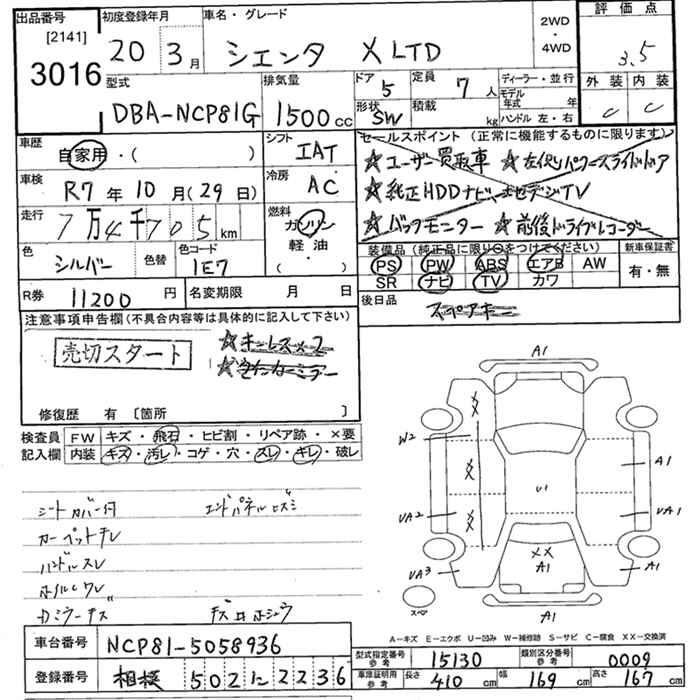 出品番号
[2141]
3016
初度登録年月
20 3月
車名・グレード
シエンタ X LTD
2WD
・
4WD
評価点
3.5
外装 内装
C C
型式
DBA-NCP81G
排気量
1500cc
ドア
5
形状
SW
定員
7人
積載
kg
ディーラー・並行
モデル
年式 年
ハンドル 左・右
車歴
自家用・( )
シフト
IAT
車検
R7年10月(29日)
冷房
AC
走行
7万4千705km
燃料
ガソリン
軽油
( )
色
シルバー
色替
色コード
1E7
R券 11200円
名変期限 月 日
セールスポイント(正常に機能するものに限ります)
★ユーザー買取車 ★左パワースライドドア
★純正HDDナビ
★バックモニター ★前後ドライブレコーダー
装備品(純正品に限り○をつけてください)
新車保証書
PS PW ABS エアB AW
SR ナビ TV カワ
有・無
後日品
スペアキー
注意事項申告欄(不具合内容等は具体的に記入して下さい)
売切スタート
★キーレス×2
修復歴 有〔箇所 〕
検査員
記入欄
FW キズ・飛石・ヒビ割・リペア跡・×要
内装 キズ・汚レ・コゲ・穴・スレ・キレ・破レ
シートカバー付 エンドパネルヒズミ
カーペットチレ
ハンドルスレ
車台番号 NCP81-5058936
登録番号 相模 502に2236
A1
XX
W2
XX
A1
U1
UA2
XX
UA1
XX
A1
UA3
A1
スペア
A1
A-キズ E-エクボ U-凹み W-補修跡 S-サビ C-腐食 XX-交換済
型式指定番号
参考
15130
類別区分番号
参考
0009
車庫証明用
参考
長さ 410cm
幅 169cm
高さ 167cm